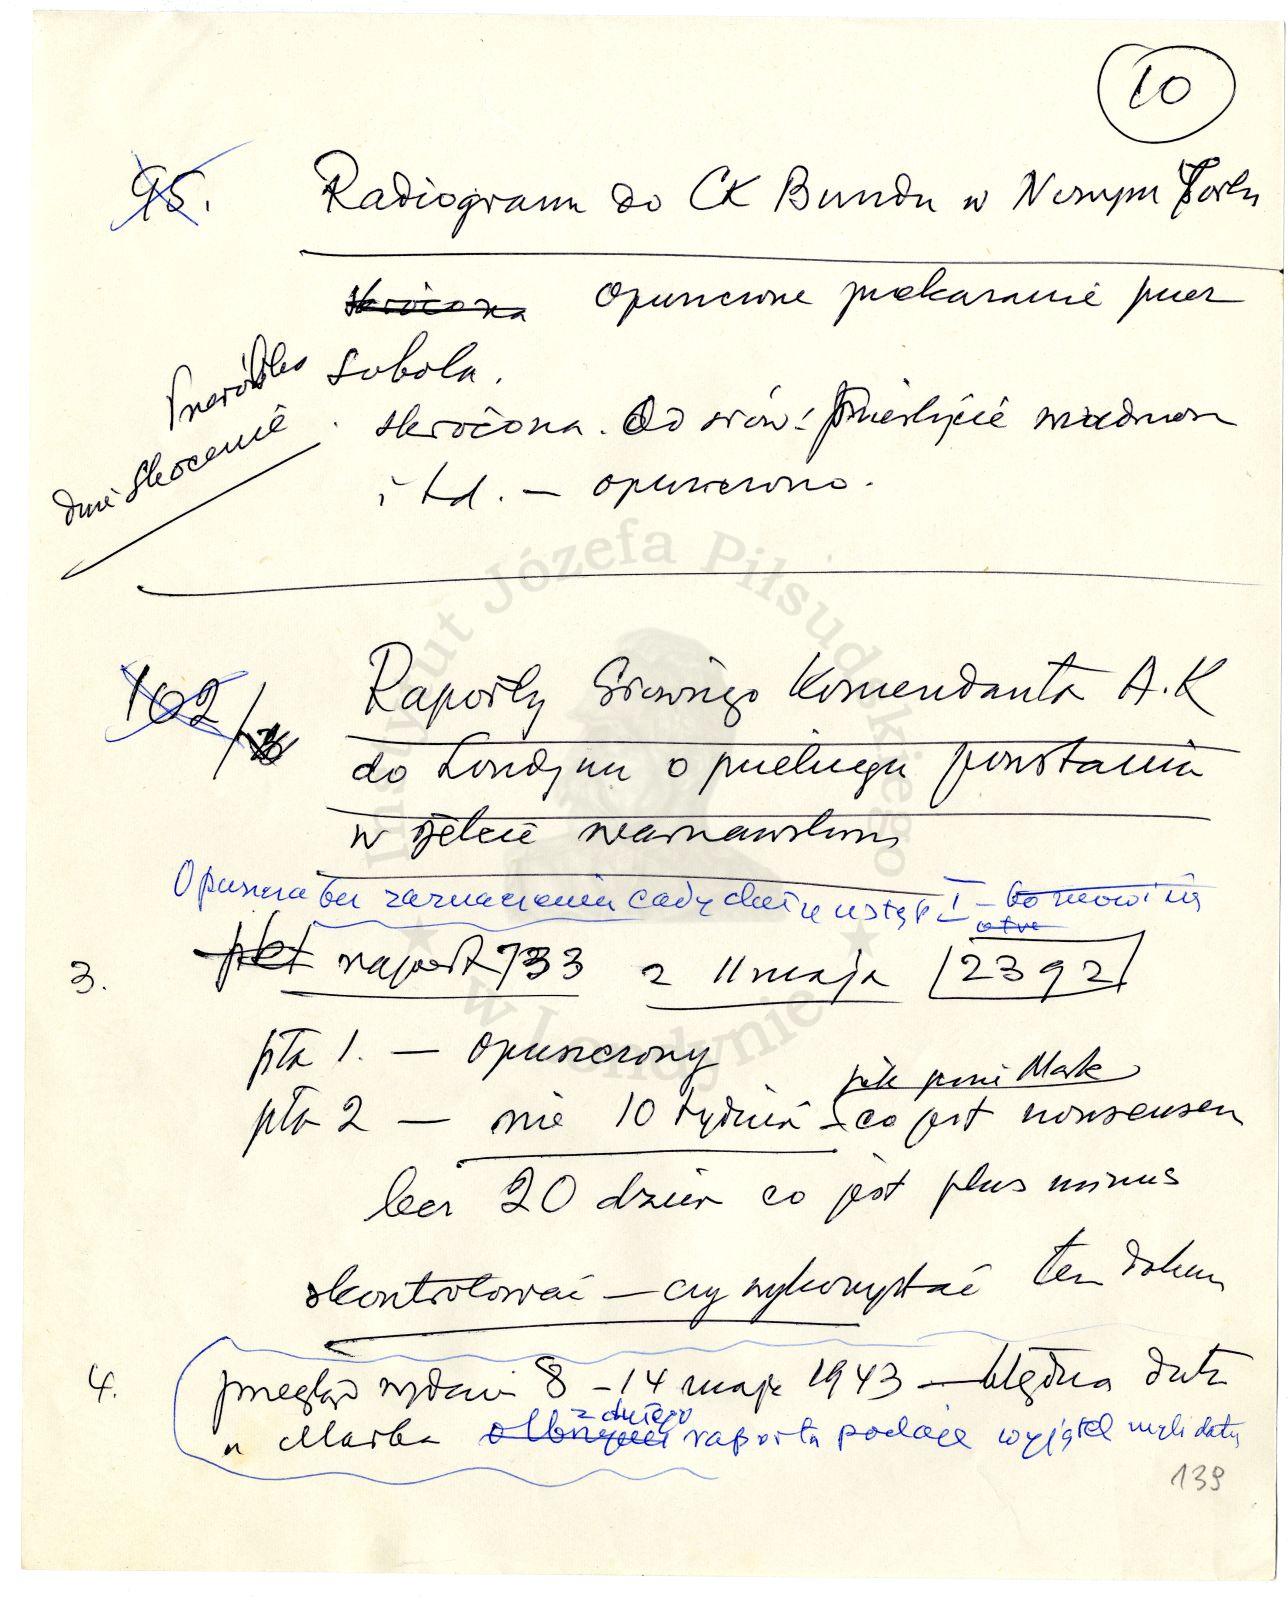 10
95. Radiogram do CK Bundu w Nowym Jorku
skrócona Opuszczone przekazanie przez
Sobola.
dwie skrócenie
skrócona. Od słów:
i t.d. – opuszczono.
102/
Raporty Głównego Komendanta A.K
do Londynu o przebiegu powstania
w getcie warszawskim
Opuszcza bez zaznaczenia cały ustęp I – bo mówi się
3. pkt raport 733 z 11 maja 2392
pkt 1. – opuszczony
pkt 2 – nie 10 tydzień – co jest nonsensem
jak pisze Mark
lecz 20 dzień co jest plus minus
skontrolować – czy wykorzystać ten dokum
4. przegląd wydarzeń 8 – 14 maja 1943 – błędna data
u Marka z dużego raportu podaje wyjątek myli daty
139
Instytut Józefa Piłsudskiego
w Londynie